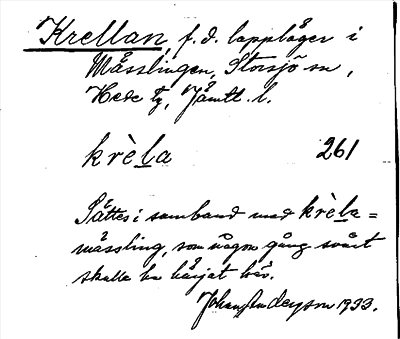 Krellan, f. d. lappläger i
Mässlingen, Storsjö sn,
Hede tg, Jämtl. l.
krèla 261
Sättes i samband med krèla=
mässling, som någon gång svårt
skulle ha härjat här.
Johan Anderson 1933.